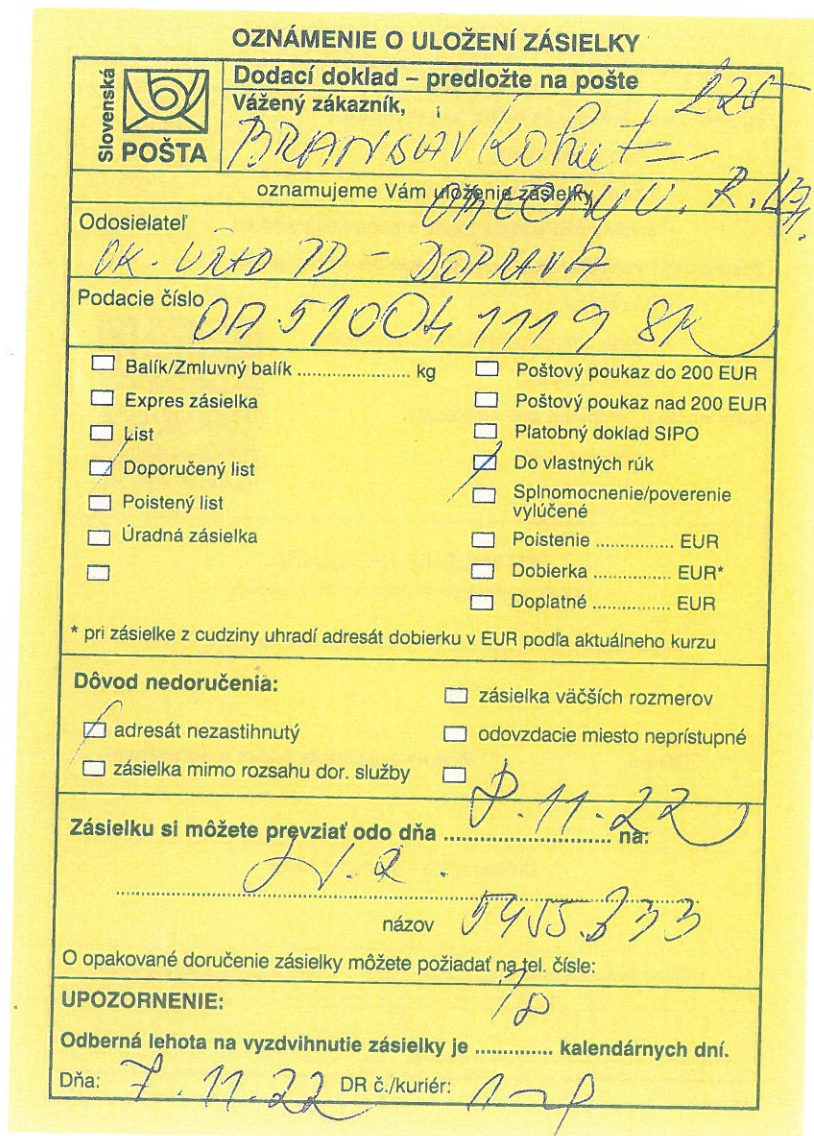 OZNÁMENIE O ULOŽENÍ ZÁSIELKY
Slovenská
POŠTA
Dodací doklad – predložte na pošte
Vážený zákazník,
225
BRANISLAV Kohut
oznamujeme Vám uloženie zásielky
U. R.
Odosielateľ
OK. ÚRAD PD - DOPRAVA
Podacie číslo
51004 1119 SK
Balík/Zmluvný balík ........................ kg
Expres zásielka
List
Doporučený list
Poistený list
Úradná zásielka
Poštový poukaz do 200 EUR
Poštový poukaz nad 200 EUR
Platobný doklad SIPO
Do vlastných rúk
Splnomocnenie/poverenie
vylúčené
Poistenie ................ EUR
Dobierka ................ EUR*
Doplatné ................ EUR
* pri zásielke z cudziny uhradí adresát dobierku v EUR podľa aktuálneho kurzu
Dôvod nedoručenia:
adresát nezastihnutý
zásielka mimo rozsahu dor. služby
zásielka väčších rozmerov
odovzdacie miesto neprístupné
Zásielku si môžete prevziať odo dňa 8.11.22 na:
názov 5455.333
O opakované doručenie zásielky môžete požiadať na tel. čísle:
UPOZORNENIE:
18
Odberná lehota na vyzdvihnutie zásielky je .............. kalendárnych dní.
Dňa: 7.11.22 DR č./kuriér: